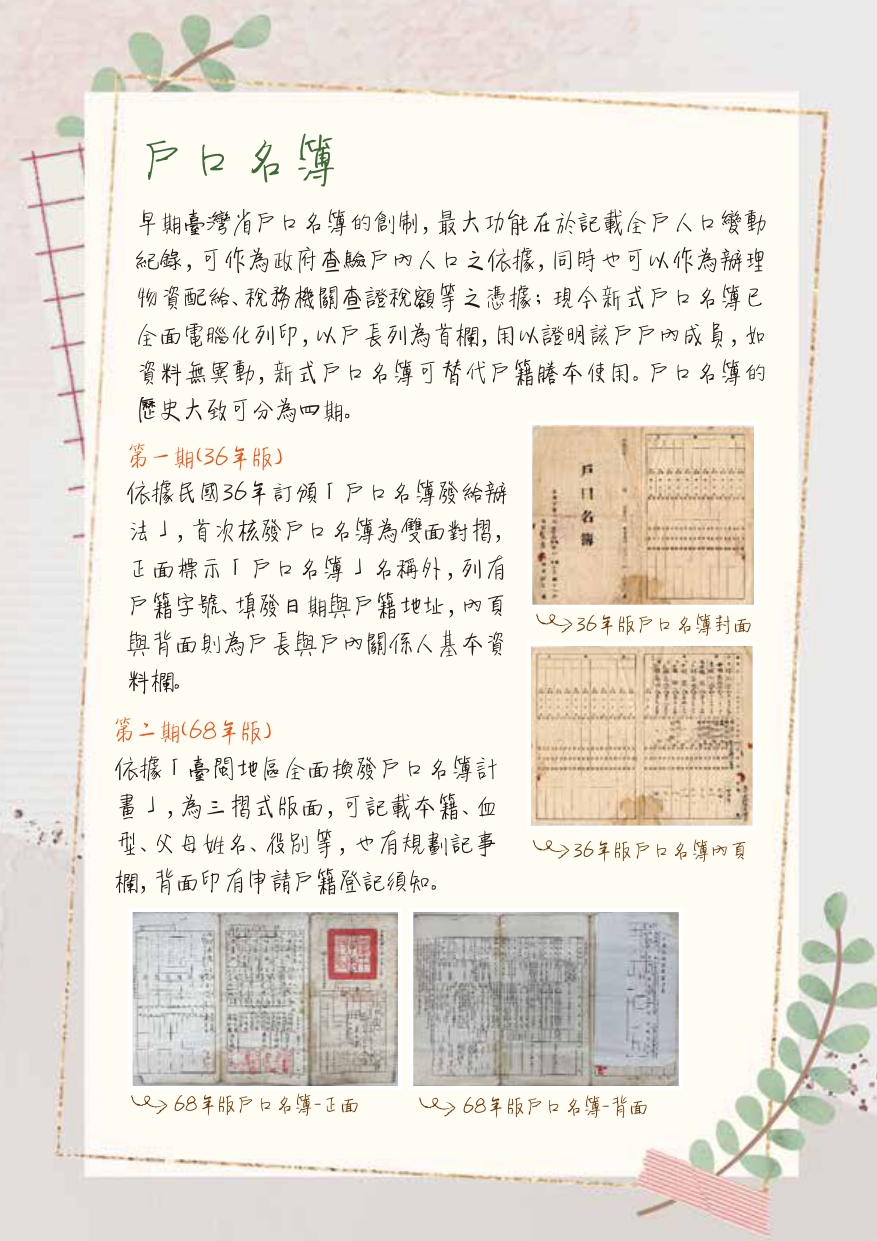 戶口名簿
早期臺灣省戶口名簿的創制，最大功能在於記載全戶人口變動
紀錄，可作為政府查驗戶內人口之依據，同時也可以作為辦理
物資配給、稅務機關查證稅額等之憑據；現今新式戶口名簿已
全面電腦化列印，以戶長列為首欄，用以證明該戶戶內成員，如
資料無異動，新式戶口名簿可替代戶籍謄本使用。戶口名簿的
歷史大致可分為四期。
第一期(36年版)
依據民國36年訂頒「戶口名簿發給辦
法」，首次核發戶口名簿為雙面對摺，
正面標示「戶口名簿」名稱外，列有
戶籍字號、填發日期與戶籍地址，內頁
與背面則為戶長與戶內關係人基本資
料欄。
戶口名簿
36年版戶口名簿封面
36年版戶口名簿內頁
第二期(68年版)
依據「臺閩地區全面換發戶口名簿計
畫」，為三摺式版面，可記載本籍、血
型、父母姓名、役別等，也有規劃記事
欄，背面印有申請戶籍登記須知。
68年版戶口名簿-正面
68年版戶口名簿-背面